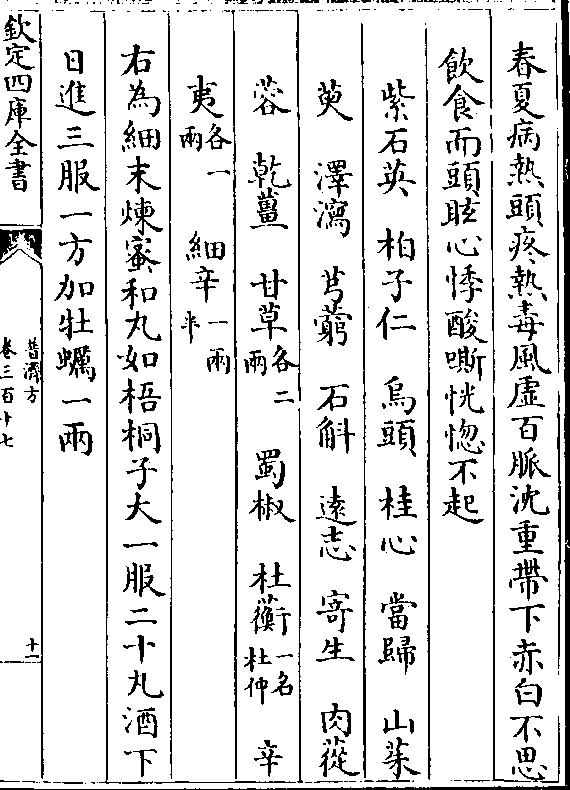 春夏病熱頭疼熱毒風虛百脈沈重帶下赤白不思
飲食而頭眩心悸酸嘶恍惚不起
紫石英　柏子仁　烏頭　桂心　當歸　山茱
萸　澤瀉　芎藭　石斛　遠志　寄生　肉蓯
蓉　乾薑　甘草各二兩　蜀椒　杜蘅一名杜仲　辛
夷各一兩　細辛一兩半
右為細末煉蜜和丸如梧桐子大一服二十丸酒下
日進三服一方加牡蠣一兩
欽定四庫全書
普濟方
卷三百十七
十一